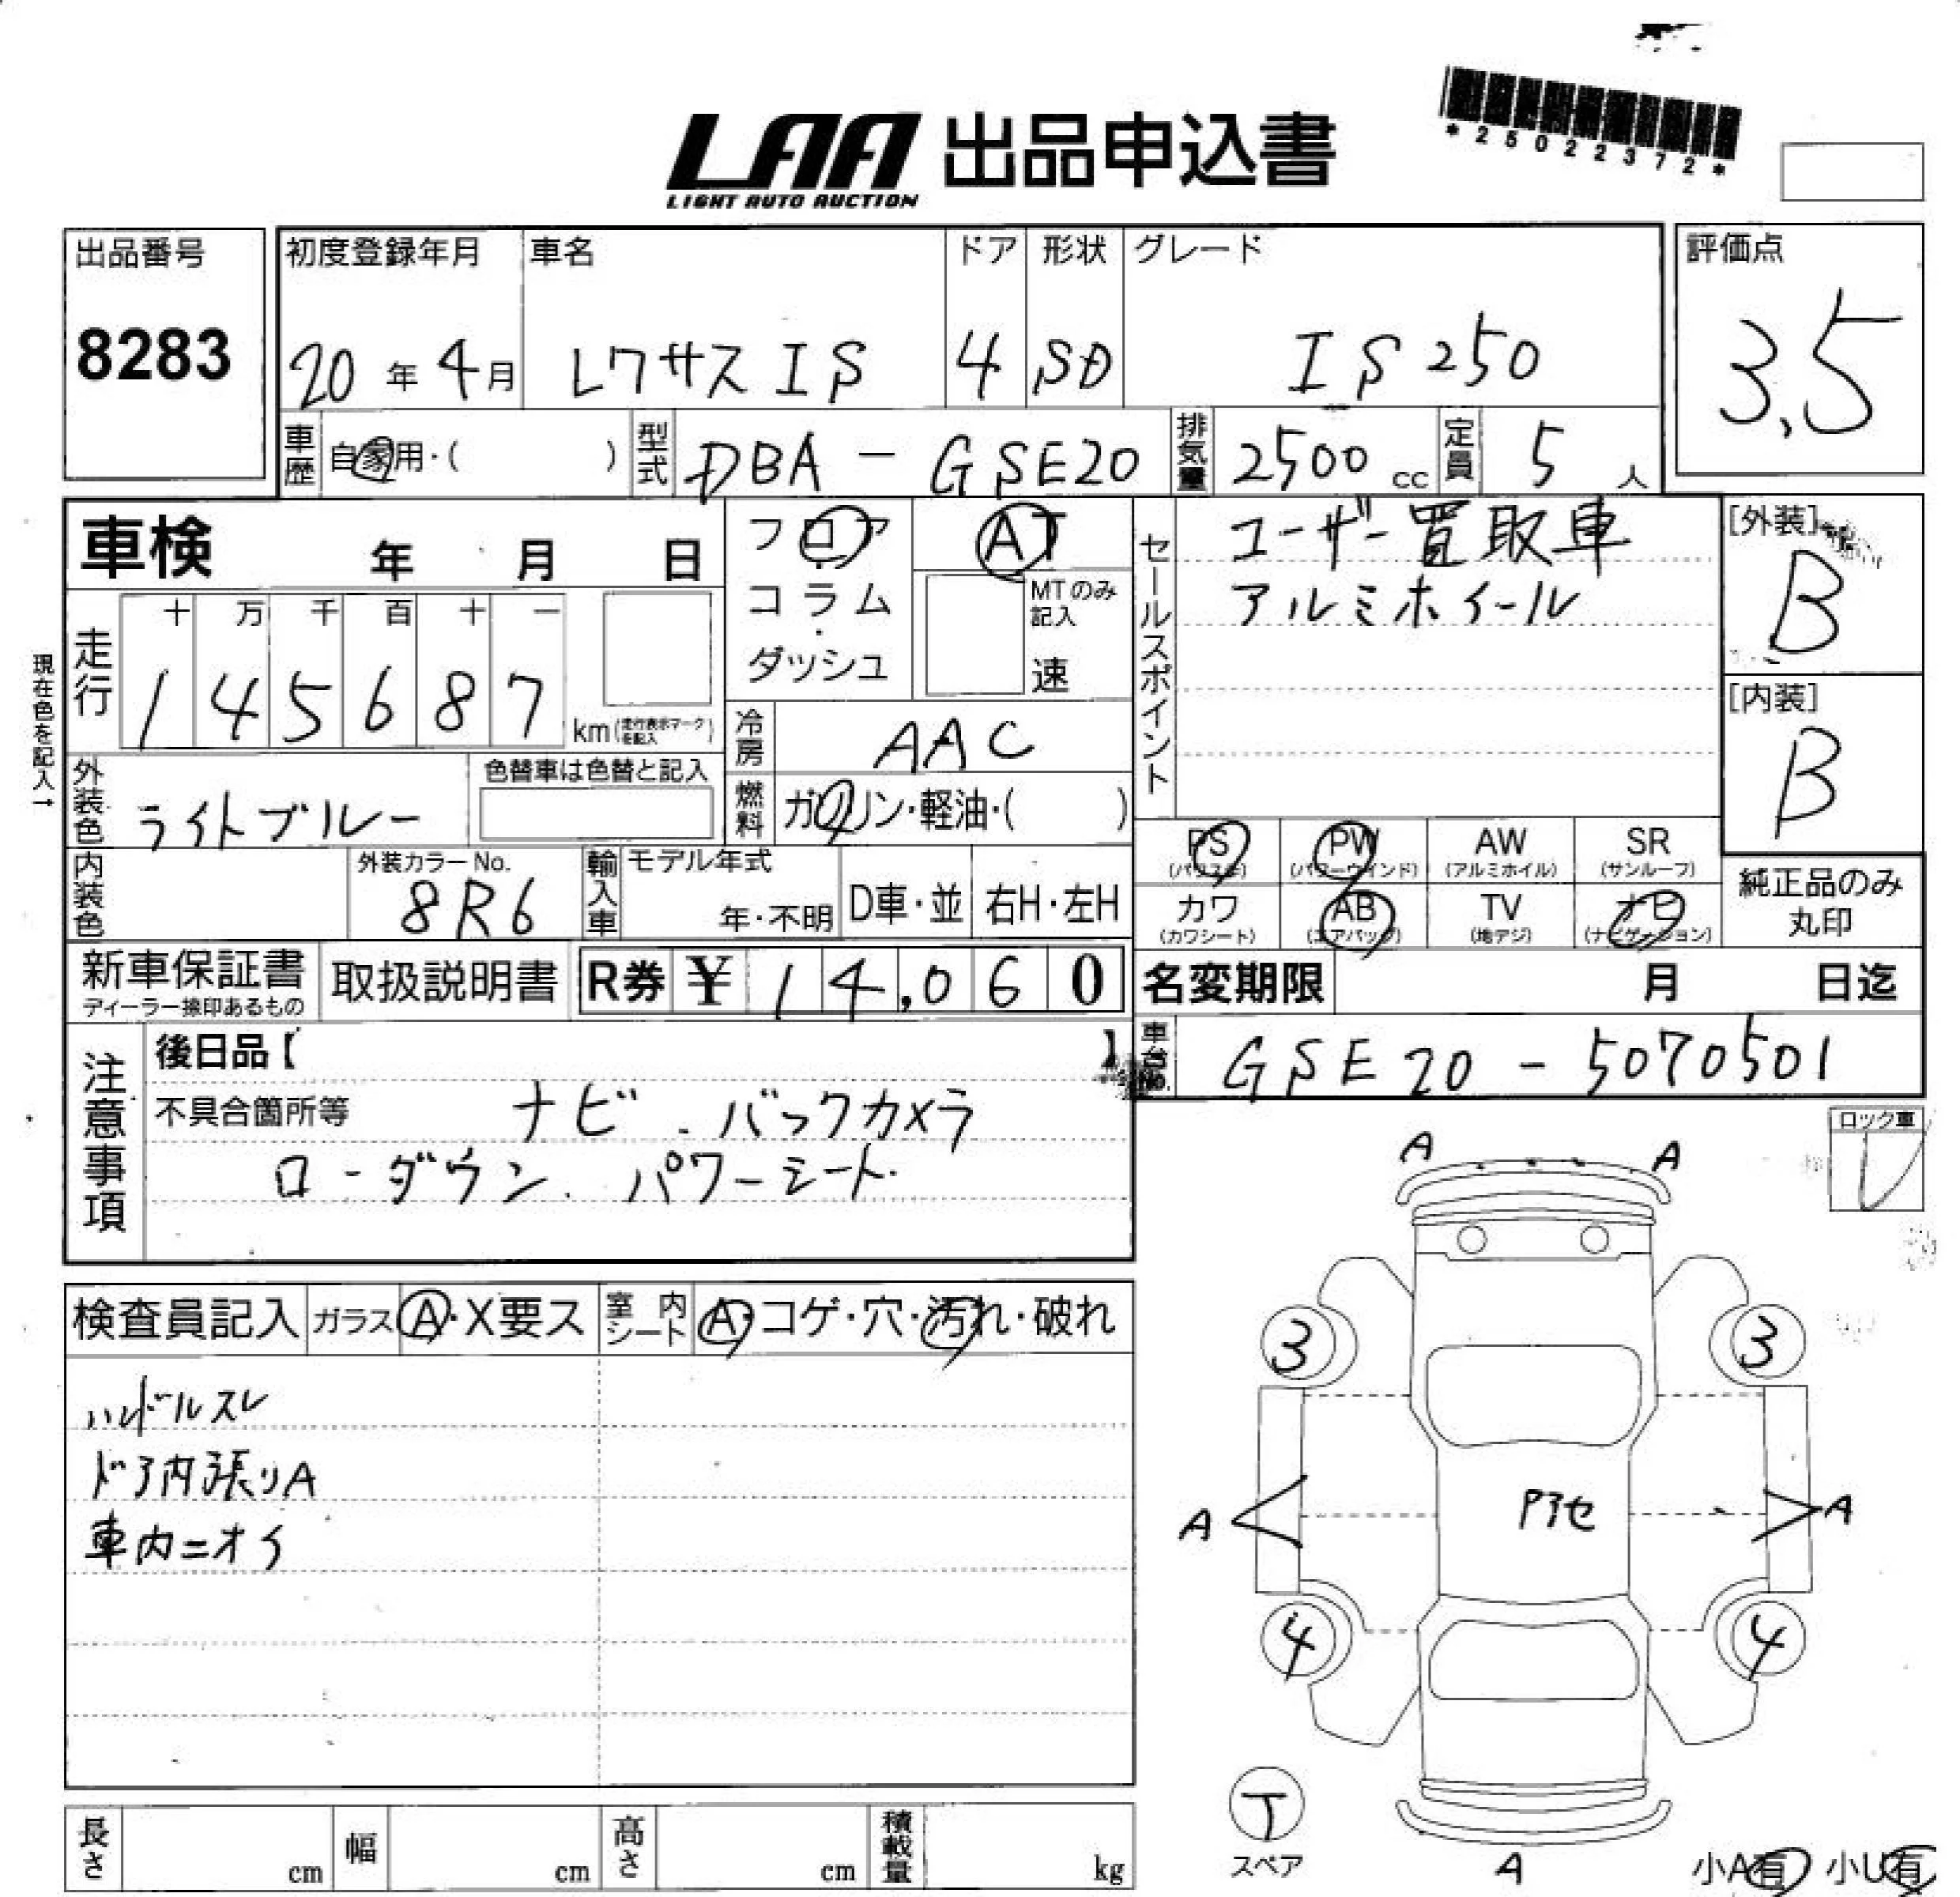 *25022372*
LAA 出品申込書
LIGHT AUTO AUCTION
出品番号 初度登録年月 車名 ドア 形状 グレード 評価点
8283 20年4月 レクサスIS 4 SD IS250 3.5
車歴 自家用・( ) 型式 DBA-GSE20 排気量 2500cc 定員 5人
車検 年 月 日
フロア AT
コラム・ MTのみ記入
ダッシュ 速
セールスポイント ユーザー買取車
アルミホイール
[外装]
B
[内装]
B
現在色を記入→
走行 十 万 千 百 十 一
1 4 5 6 8 7 km(走行表示マークを記入)
冷房 AAC
外装色 ライトブルー 色替車は色替と記入
燃料 ガソリン・軽油・( )
PS PW AW SR
(パワステ) (パワーウインド) (アルミホイル) (サンルーフ)
カワ AB TV ナビ
(カワシート) (エアバッグ) (地デジ) (ナビゲーション)
純正品のみ
丸印
内装色 外装カラーNo. 8R6 輸入車 モデル年式 年・不明 D車・並 右H・左H
新車保証書 取扱説明書 R券 ¥ 14,060
ディーラー捺印あるもの
名変期限 月 日迄
車台No. GSE20-5070501
注意事項 後日品【 】
不具合箇所等 ナビ.バックカメラ
ローダウン.パワーシート.
ロック車
レ
検査員記入 ガラス A・X要ス 室内シート A・コゲ・穴・汚れ・破れ
ハンドルスレ
ドア内張りA
車内ニオイ
A A
3 3
A Pアセ A
4 4
T
スペア A 小A有 小U有
長さ cm 幅 cm 高さ cm 積載量 kg